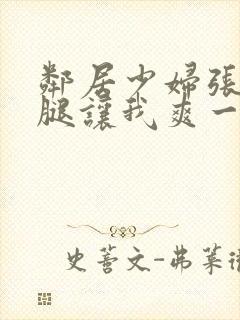 鄰居少婦張
腿讓我爽一
史蓍文-弗萊